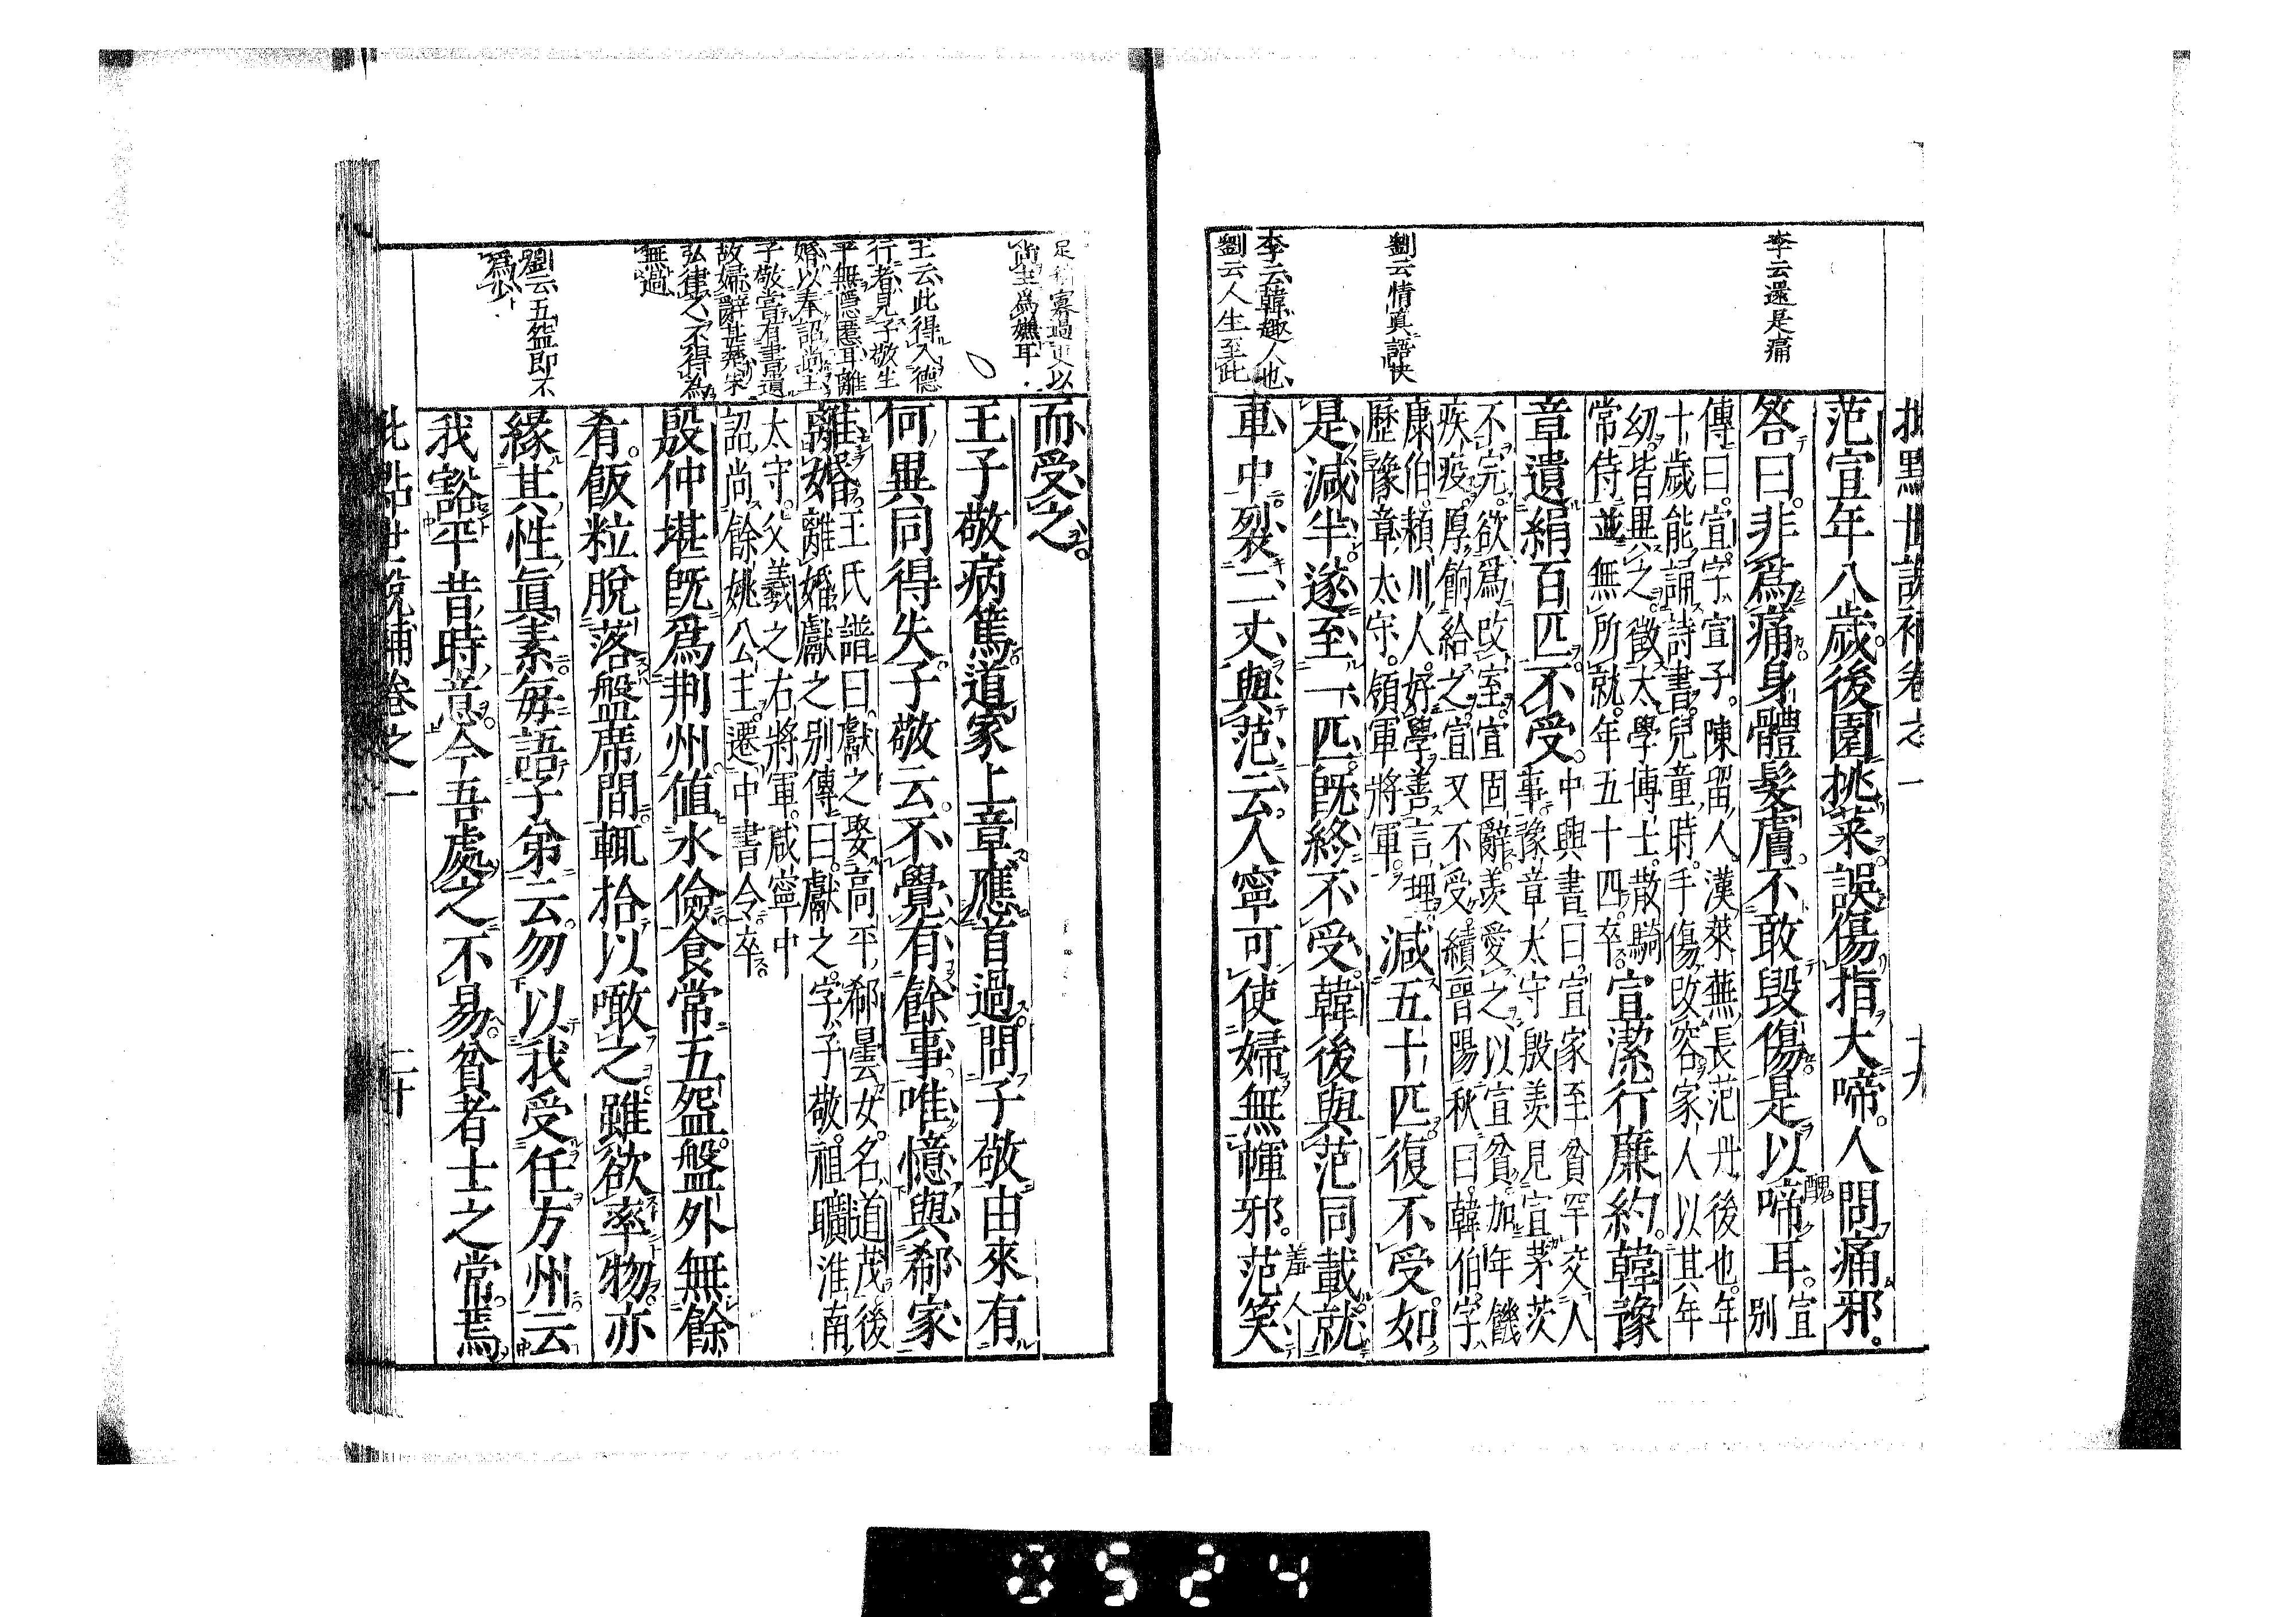 批點世說補卷之一 十九
李云還是痛
劉云情真語快
李云韓趣人也
劉云人生至此
范宣年八歲後園挑菜誤傷指大啼人問痛邪
答曰非爲痛身體髮膚不敢毀傷是以啼耳宣別
傳曰宣字宣子陳留人漢萊蕪長范丹後也年
十歲能誦詩書兒童時手傷改容家人以其年
幼皆異之徵太學博士散騎
常侍並無所就年五十四卒宣潔行廉約韓豫
章遺絹百匹不受中興書曰宣家至貧罕交人
事豫章太守殷羨見宣茅茨
不完欲爲改室宣固辭羨愛之以宣貧加年饑
疾疫厚餉給之宣又不受續晉陽秋曰韓伯字
康伯穎川人好學善言理
歷豫章太守領軍將軍減五十匹復不受如
是減半遂至一匹既終不受韓後與范同載就
車中裂二丈與范云人寧可使婦無褌邪范笑
羞人
而受之
足稱寡過更以
尚主爲嫌耳
王云此得入德
行者見子敬生
平無隱慝耳離
婚以奉詔尚主
子敬當有書遺
故婦辭甚
弘律之不得為
無過
劉云五盌即不
爲少
王子敬病篤道家上章應首過問子敬由來有
何異同得失子敬云不覺有餘事唯憶與郗家
離婚王氏譜曰獻之娶高平郗曇女名道茂後
離婚獻之別傳曰獻之字子敬祖曠淮南
太守父羲之右將軍咸寧中
詔尚餘姚公主遷中書令卒
殷仲堪既爲荆州值水儉食常五盌盤外無餘
肴飯粒脫落盤席間輒拾以噉之雖欲率物亦
緣其性真素每語子弟云勿以我受任方州云
我豁平昔時意今吾處之不易貧者士之常焉
批點世說補卷之一 二十
0524